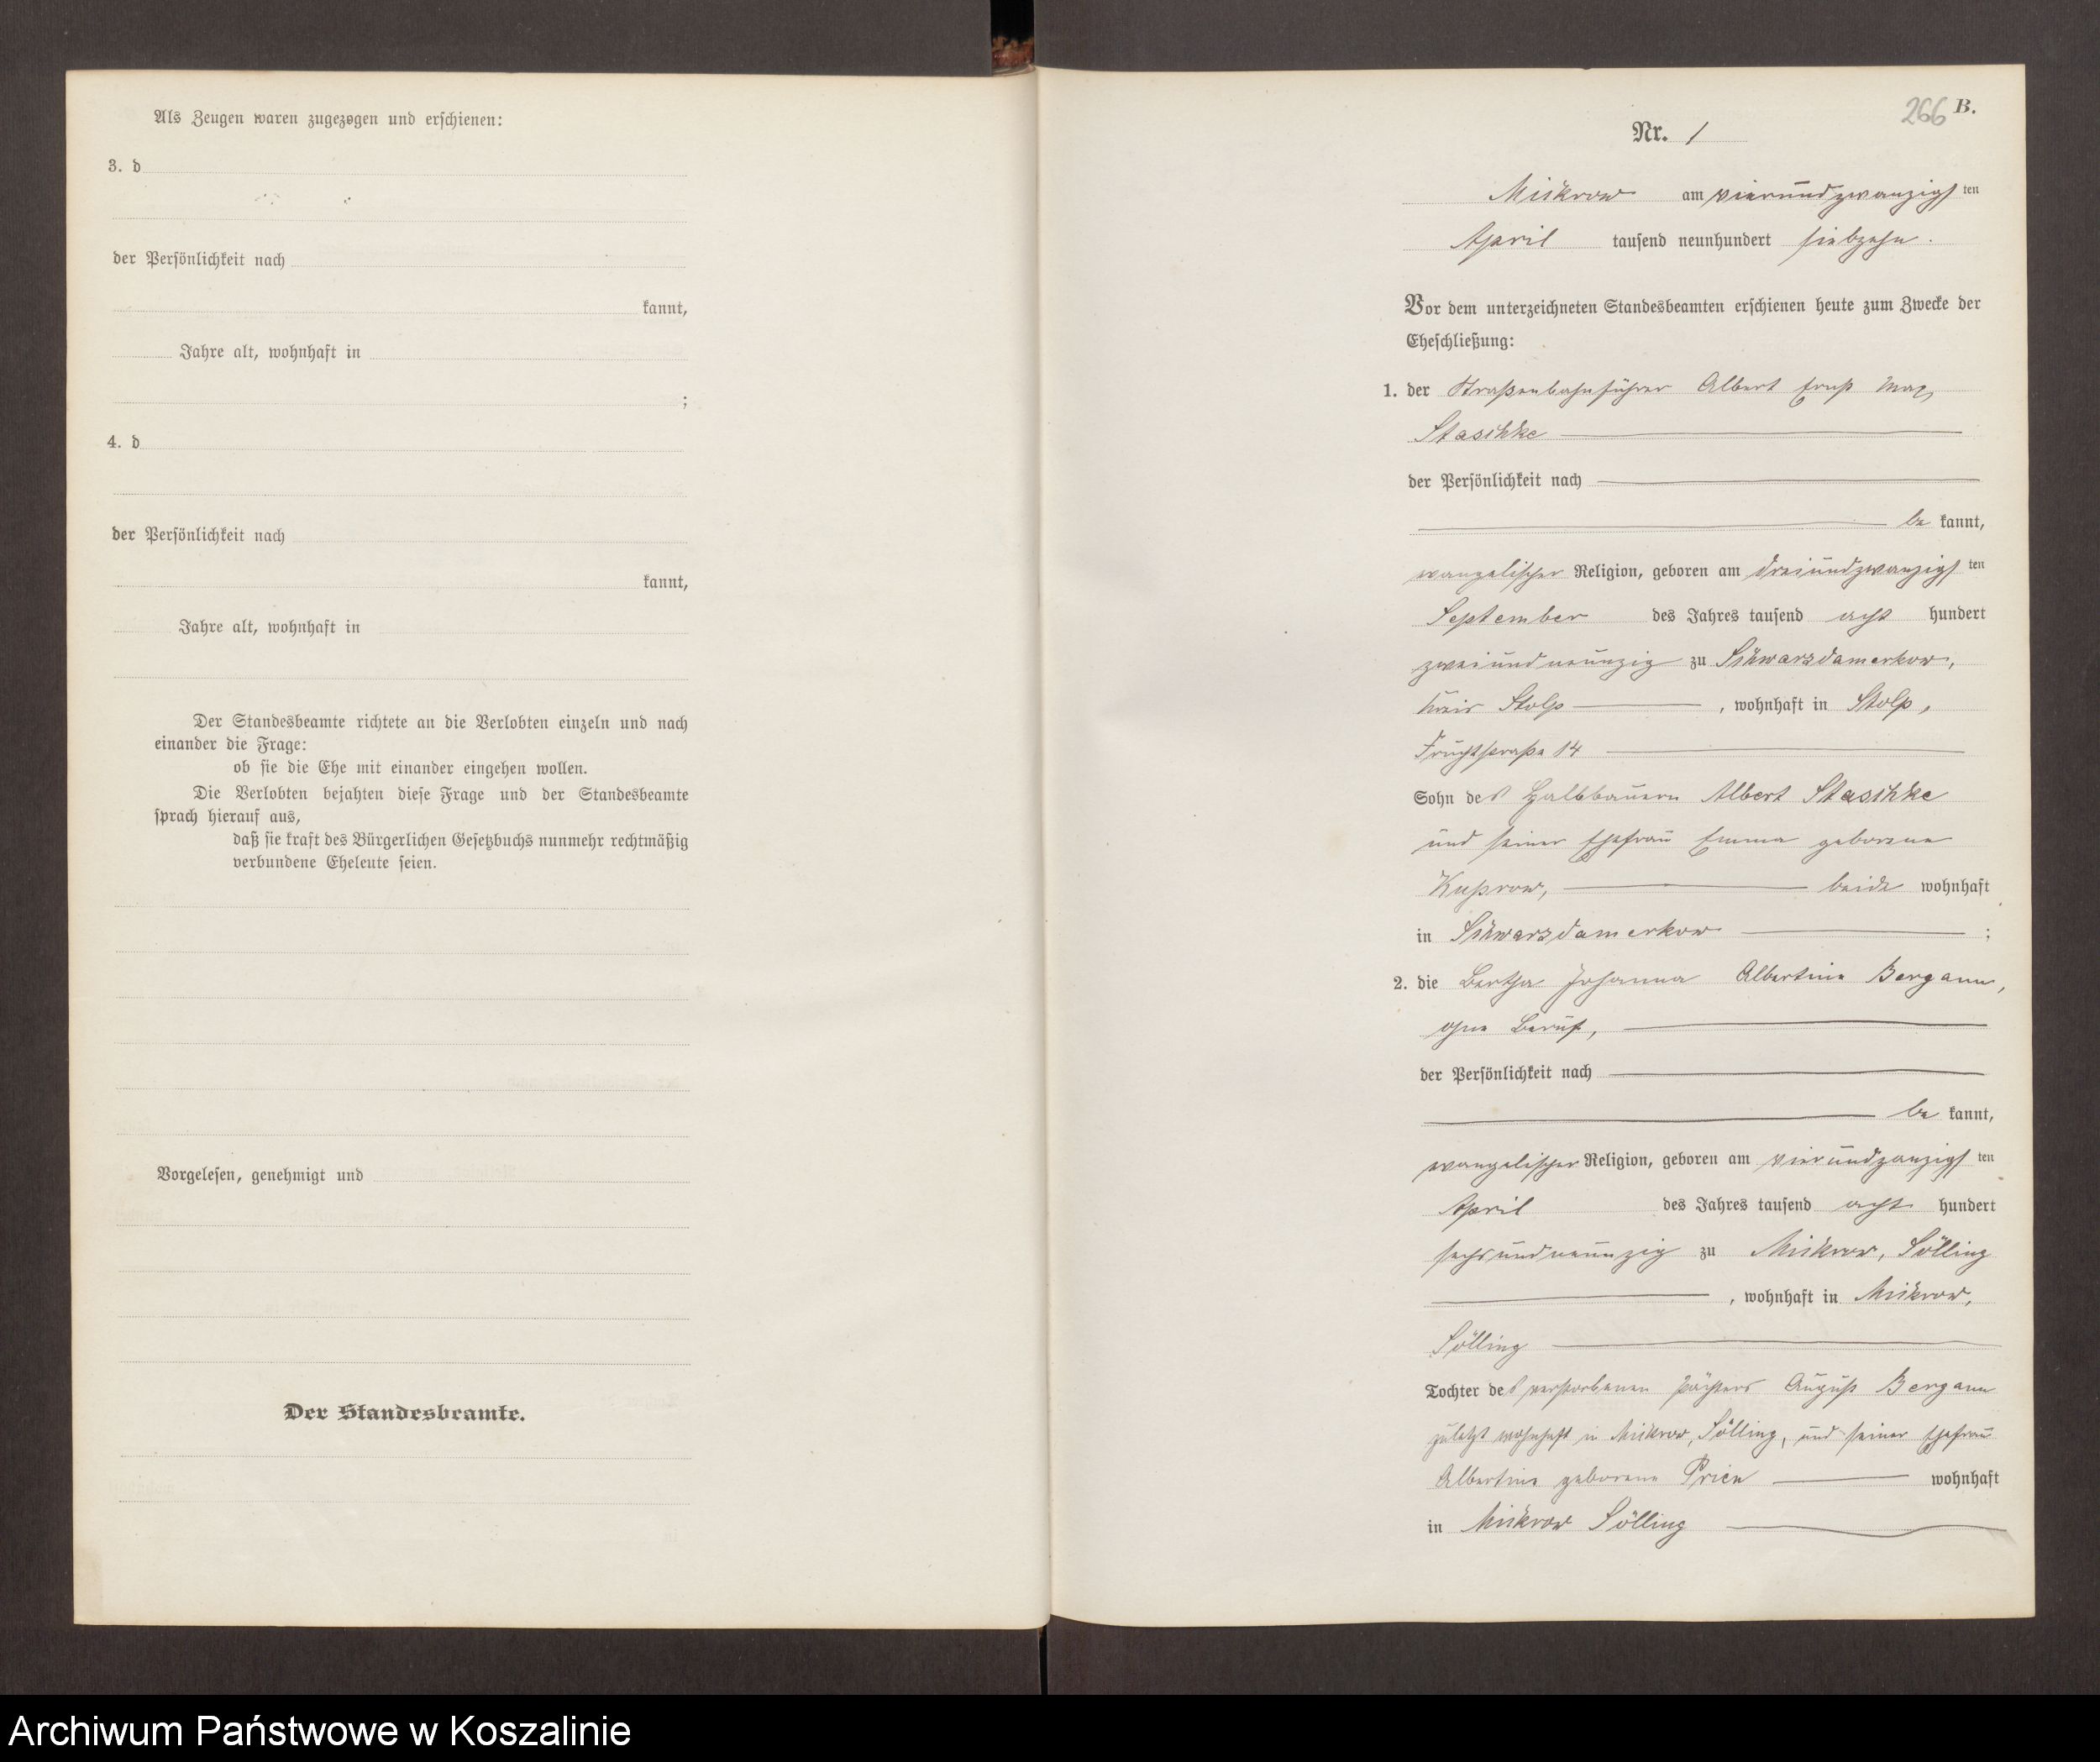 Als Zeugen waren zugezogen und erschienen:
3. d
der Persönlichkeit nach
kannt,
Jahre alt, wohnhaft in
;
4. d
der Persönlichkeit nach
kannt,
Jahre alt, wohnhaft in
Der Standesbeamte richtete an die Verlobten einzeln und nach
einander die Frage:
ob sie die Ehe mit einander eingehen wollen.
Die Verlobten bejahten diese Frage und der Standesbeamte
sprach hierauf aus,
daß sie kraft des Bürgerlichen Gesetzbuchs nunmehr rechtmäßig
verbundene Eheleute seien.
Vorgelesen, genehmigt und
Der Standesbeamte.
266 B.
Nr. 1
Mickrow am vierundzwanzigsten
April tausend neunhundert siebzehn.
Vor dem unterzeichneten Standesbeamten erschienen heute zum Zwecke der
Eheschließung:
1. der Straßenbahnführer Albert Ernst Max
Staschke
der Persönlichkeit nach
be kannt,
evangelischer Religion, geboren am dreiundzwanzigsten
September des Jahres tausend acht hundert
zweiundneunzig zu Schwarzdamerkow,
Kreis Stolp, wohnhaft in Stolp,
Fruchtstraße 14
Sohn des Halbbauern Albert Staschke
und seiner Ehefrau Emma geborene
Kuprow, beide wohnhaft
in Schwarzdamerkow ;
2. die Bertha Johanna Albertine Bergann,
ohne Beruf,
der Persönlichkeit nach
be kannt,
evangelischer Religion, geboren am vierundzanzigsten
April des Jahres tausend acht hundert
sechsundneunzig zu Mickrow, Sölling
, wohnhaft in Mickrow,
Sölling
Tochter des verstorbenen Pächters August Bergann
zuletzt wohnhaft in Mickrow, Sölling, und seiner Ehefrau
Albertine geborene Prien wohnhaft
in Mickrow Sölling
Archiwum Państwowe w Koszalinie